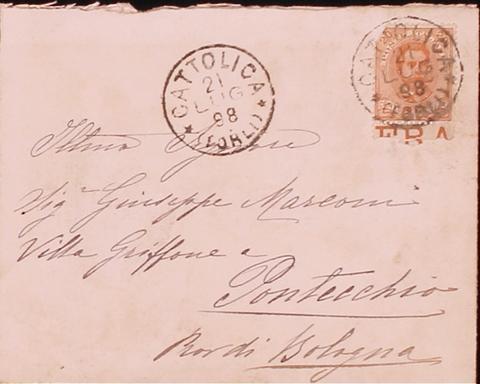 CATTOLICA
21
LUG
98
(FORLI)
CATTOLICA
21
LUG
98
(FORLI)
Illmo Signore
Sigr Giuseppe Marconi
Villa Griffone a
Pontecchio
Bologna